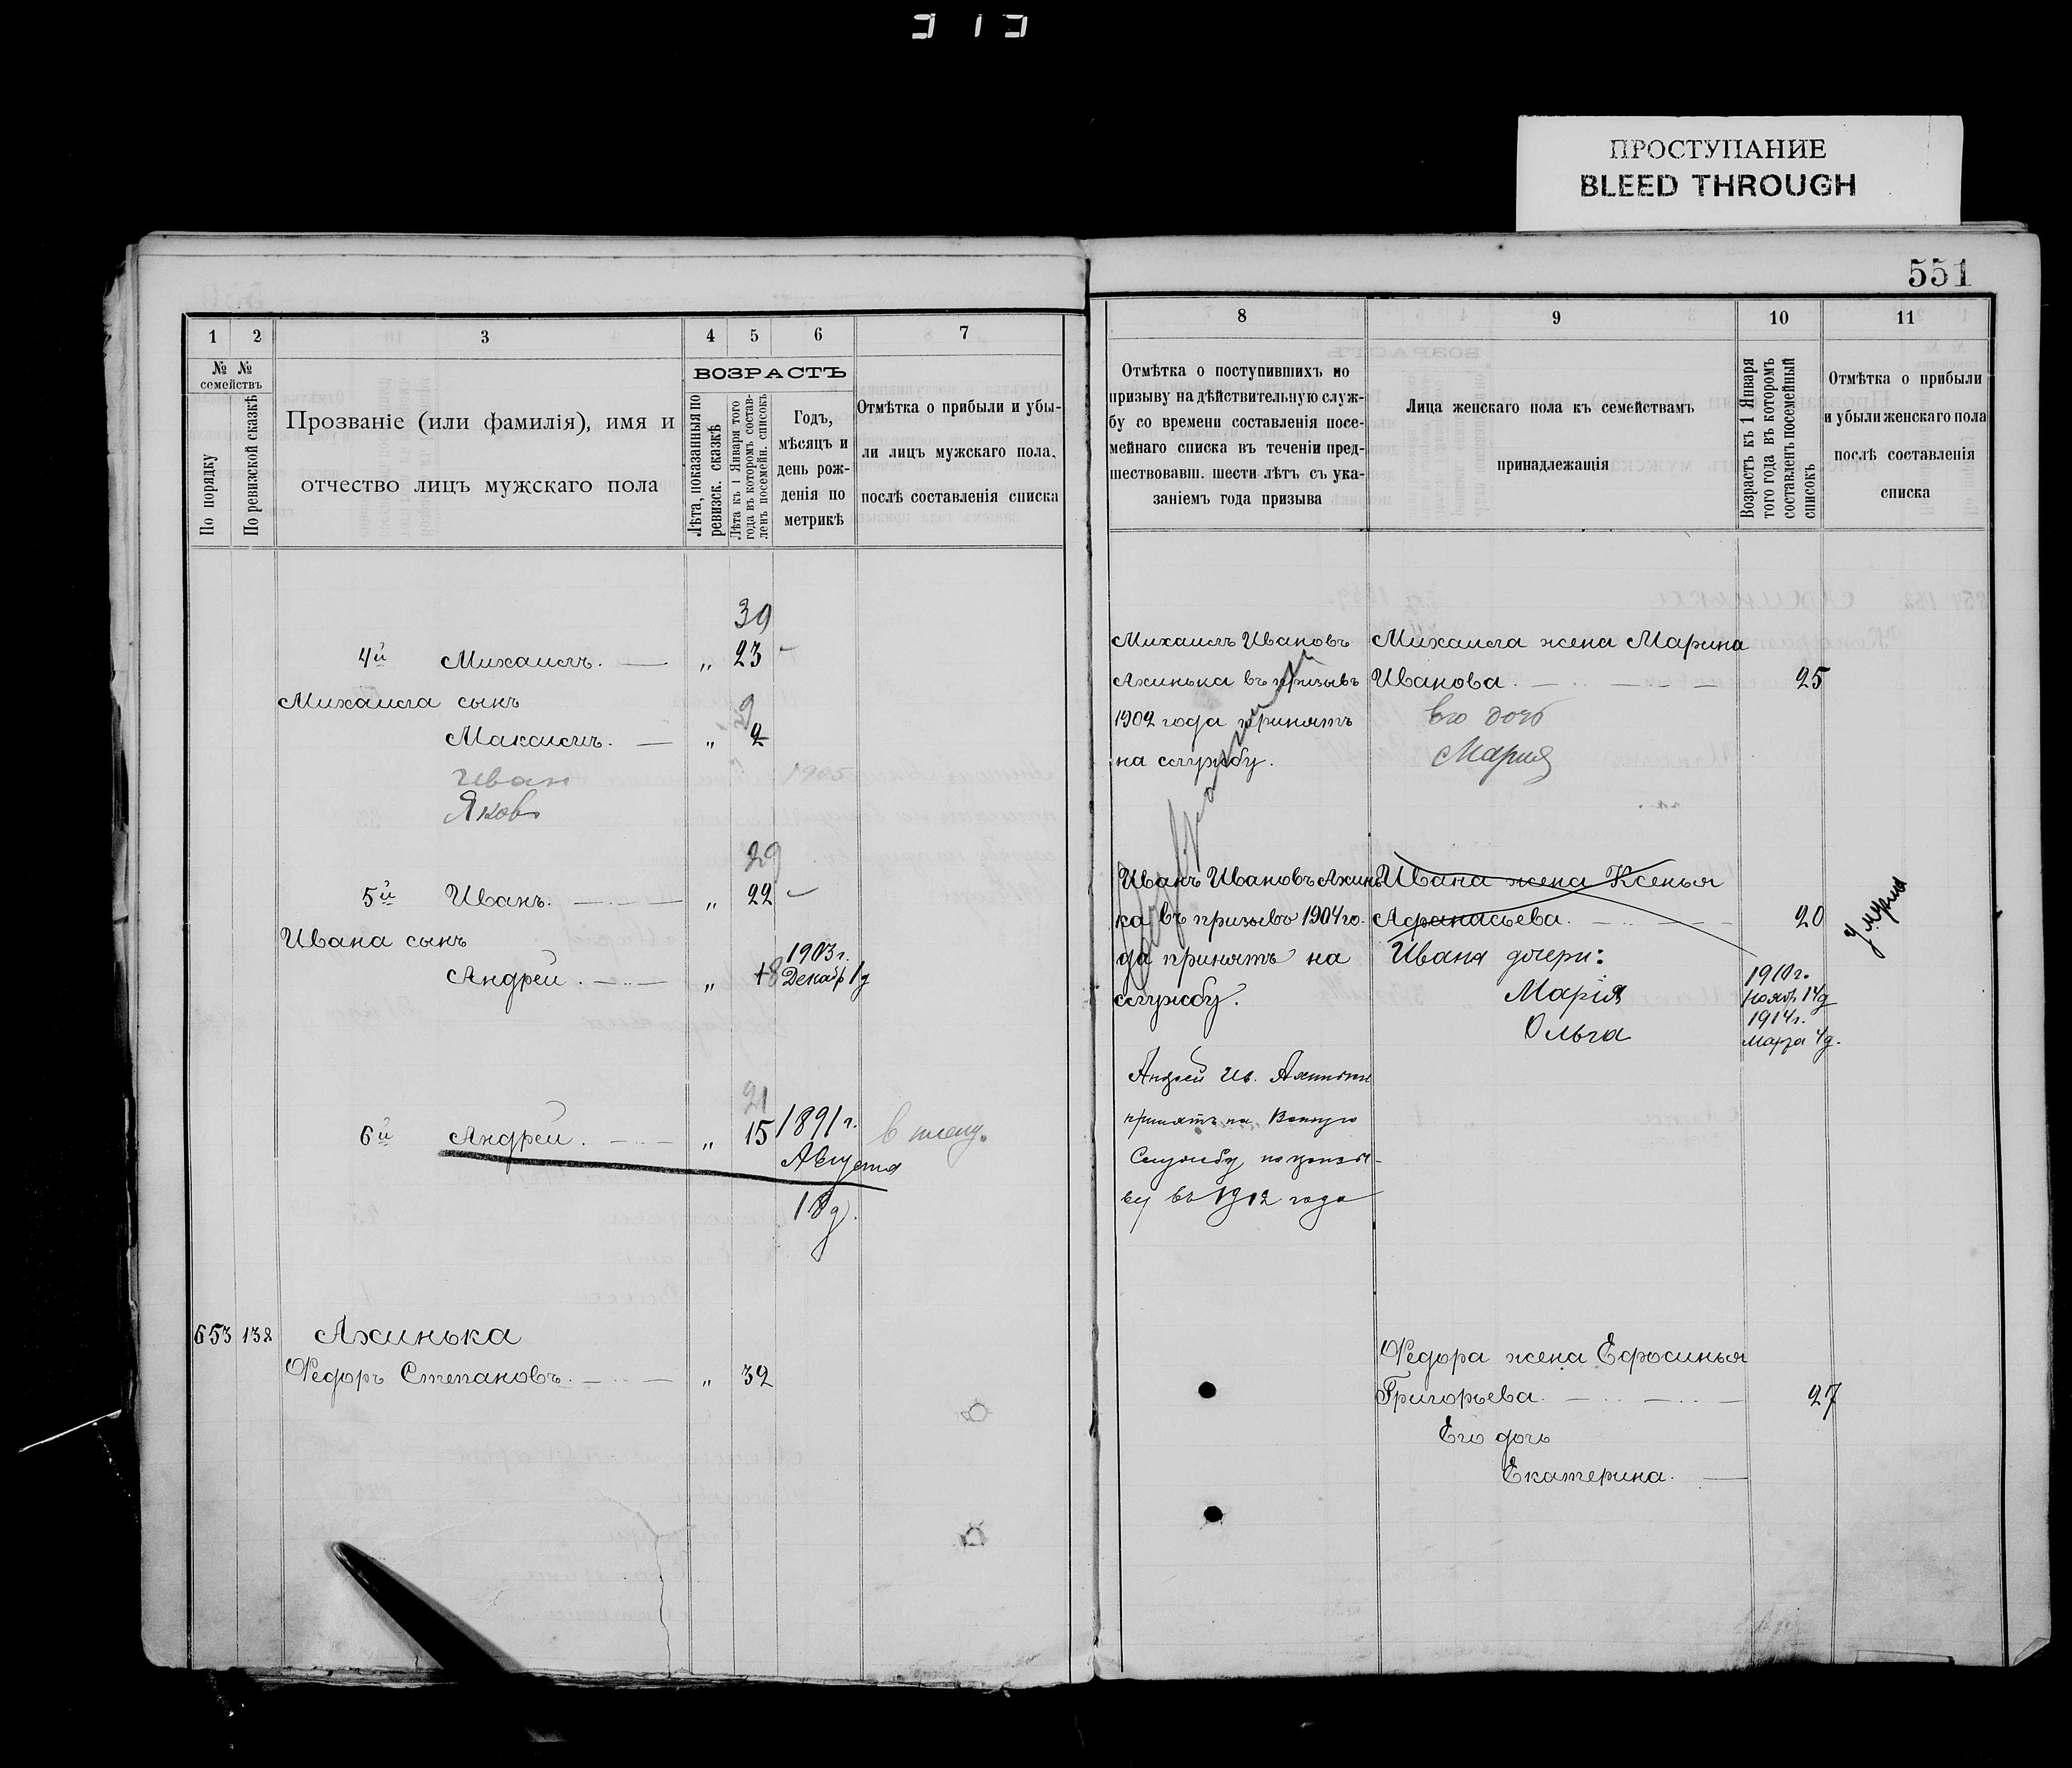 313
ПРОСТУПАНИЕ
BLEED THROUGH
551
1 2 3 4 5 6 7
№ № семействъ
По порядку
По ревизской сказкѣ
Прозваніе (или фамилія), имя и
отчество лицъ мужскаго пола
ВОЗРАСТЪ
Лѣта, показанныя по
ревизск. сказкѣ
Лѣта къ 1 Января того
года въ которомъ состав-
ленъ посемейн. списокъ
Годъ,
мѣсяцъ и
день рож-
денія по
метрикѣ
Отмѣтка о прибыли и убы-
ли лицъ мужскаго пола,
послѣ составленія списка
30
4й Михаилъ. — „ 23 —
Михаила сынъ
9
Максимъ. — „ 2
Иван 1905
Яков
29
5й Иванъ. — „ 22 —
Ивана сынъ
1903 г.
Андрей. — „ 18 Декабр 1 д
21
6й Андрей. — „ 15 1891 г.
Августа
18 д.
653 132 Ахинька
Федоръ Степановъ. — „ 32
8 9 10 11
Отмѣтка о поступившихъ по
призыву на дѣйствительную служ-
бу со времени составленія посе-
мейнаго списка въ теченіи пред-
шествовавш. шести лѣтъ съ ука-
заніемъ года призыва
Лица женскаго пола къ семействамъ
принадлежащія
Возрастъ къ 1 Января
того года въ которомъ
составленъ посемейный
списокъ
Отмѣтка о прибыли
и убыли женскаго пола
послѣ составленія
списка
Михаилъ Ивановъ
Ахинька въ призывъ
1902 года принятъ
на службу.
Михаила жена Марина
Иванова. — 25
Его дочь
Мария
Иванъ Ивановъ Ахинь
ка въ призывъ 1904 го.
да принятъ на
службу.
Ивана жена Ксенья
Афанасьева. — 20
Умерла
Ивана дочери:
Марія
1910 г.
Ноябр 14 д
Ольга
1914 г.
Марта 4 д.
Андрей Ив. Ахинька
принятъ на Военную
Службу по призы-
ву въ 1912 года
Федора жена Ефросинья
Григорьева. — 27
Его дочь
Екатерина. —